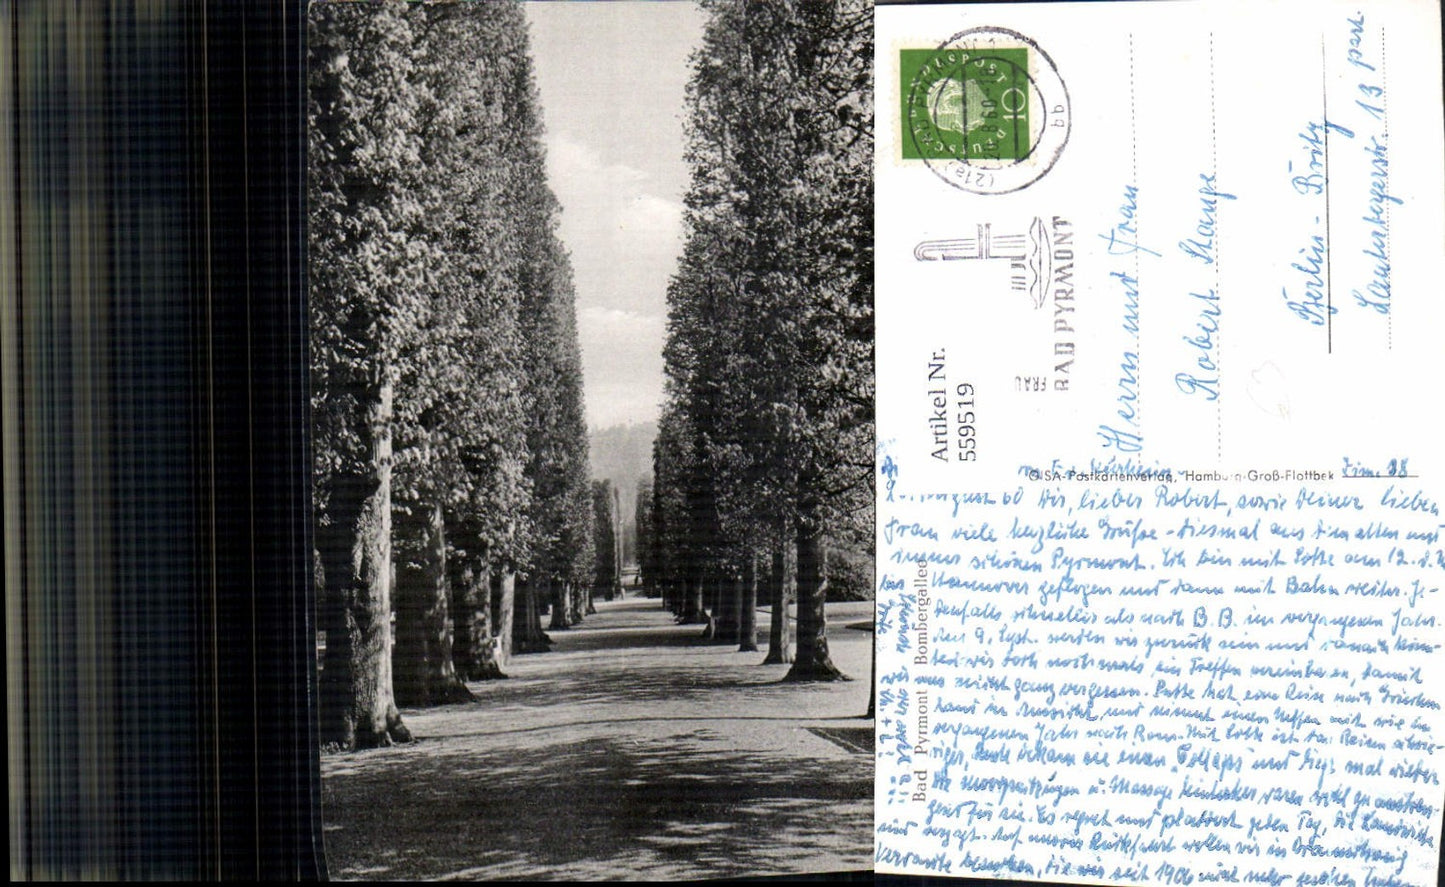 DEUTSCHE BUNDESPOST
10
(21a) BAD PYRMONT 1
20.8.60-18
bb
BAD PYRMONT
FRAU
Artikel Nr.
559519
Herrn und Frau
Robert Stange
Berlin - Britz
Lauterbergerstr. 13 part.
GISA-Postkartenverlag, Hamburg-Groß-Flottbek
Bad Pyrmont Bombergallee
August 60 Dir, lieber Robert, sowie Deiner lieben
Frau viele herzliche Grüße - diesmal aus dem alten und
immer schönen Pyrmont. Ich bin mit Lotte am 12. d. M.
bis Hannover geflogen und dann mit Bahn weiter. Je-
denfalls schneller als nach B. B. im vergangenen Jahr.
Am 9. Sept. werden wir zurück sein und danach könn-
ten wir doch nochmals ein Treffen vereinbaren, damit
wir uns nicht ganz vergessen. Lotte hat eine Reise nach Griechen
land in Aussicht und nimmt einen Neffen mit wie im
vergangenen Jahr nach Rom. Mit Lotte ist das Reisen schwie-
riger, heute bekam sie einen Kollaps und liegt mal wieder
die Moorpackungen u. Massage waren wohl zu anstren-
gend für sie. Es regnet und pladdert jeden Tag, die Landwirte
sind verzagt. Auf unserer Rückfahrt wollen wir in Braunschweig
Verwandte besuchen, die wir seit 1906 nicht mehr gesehen haben